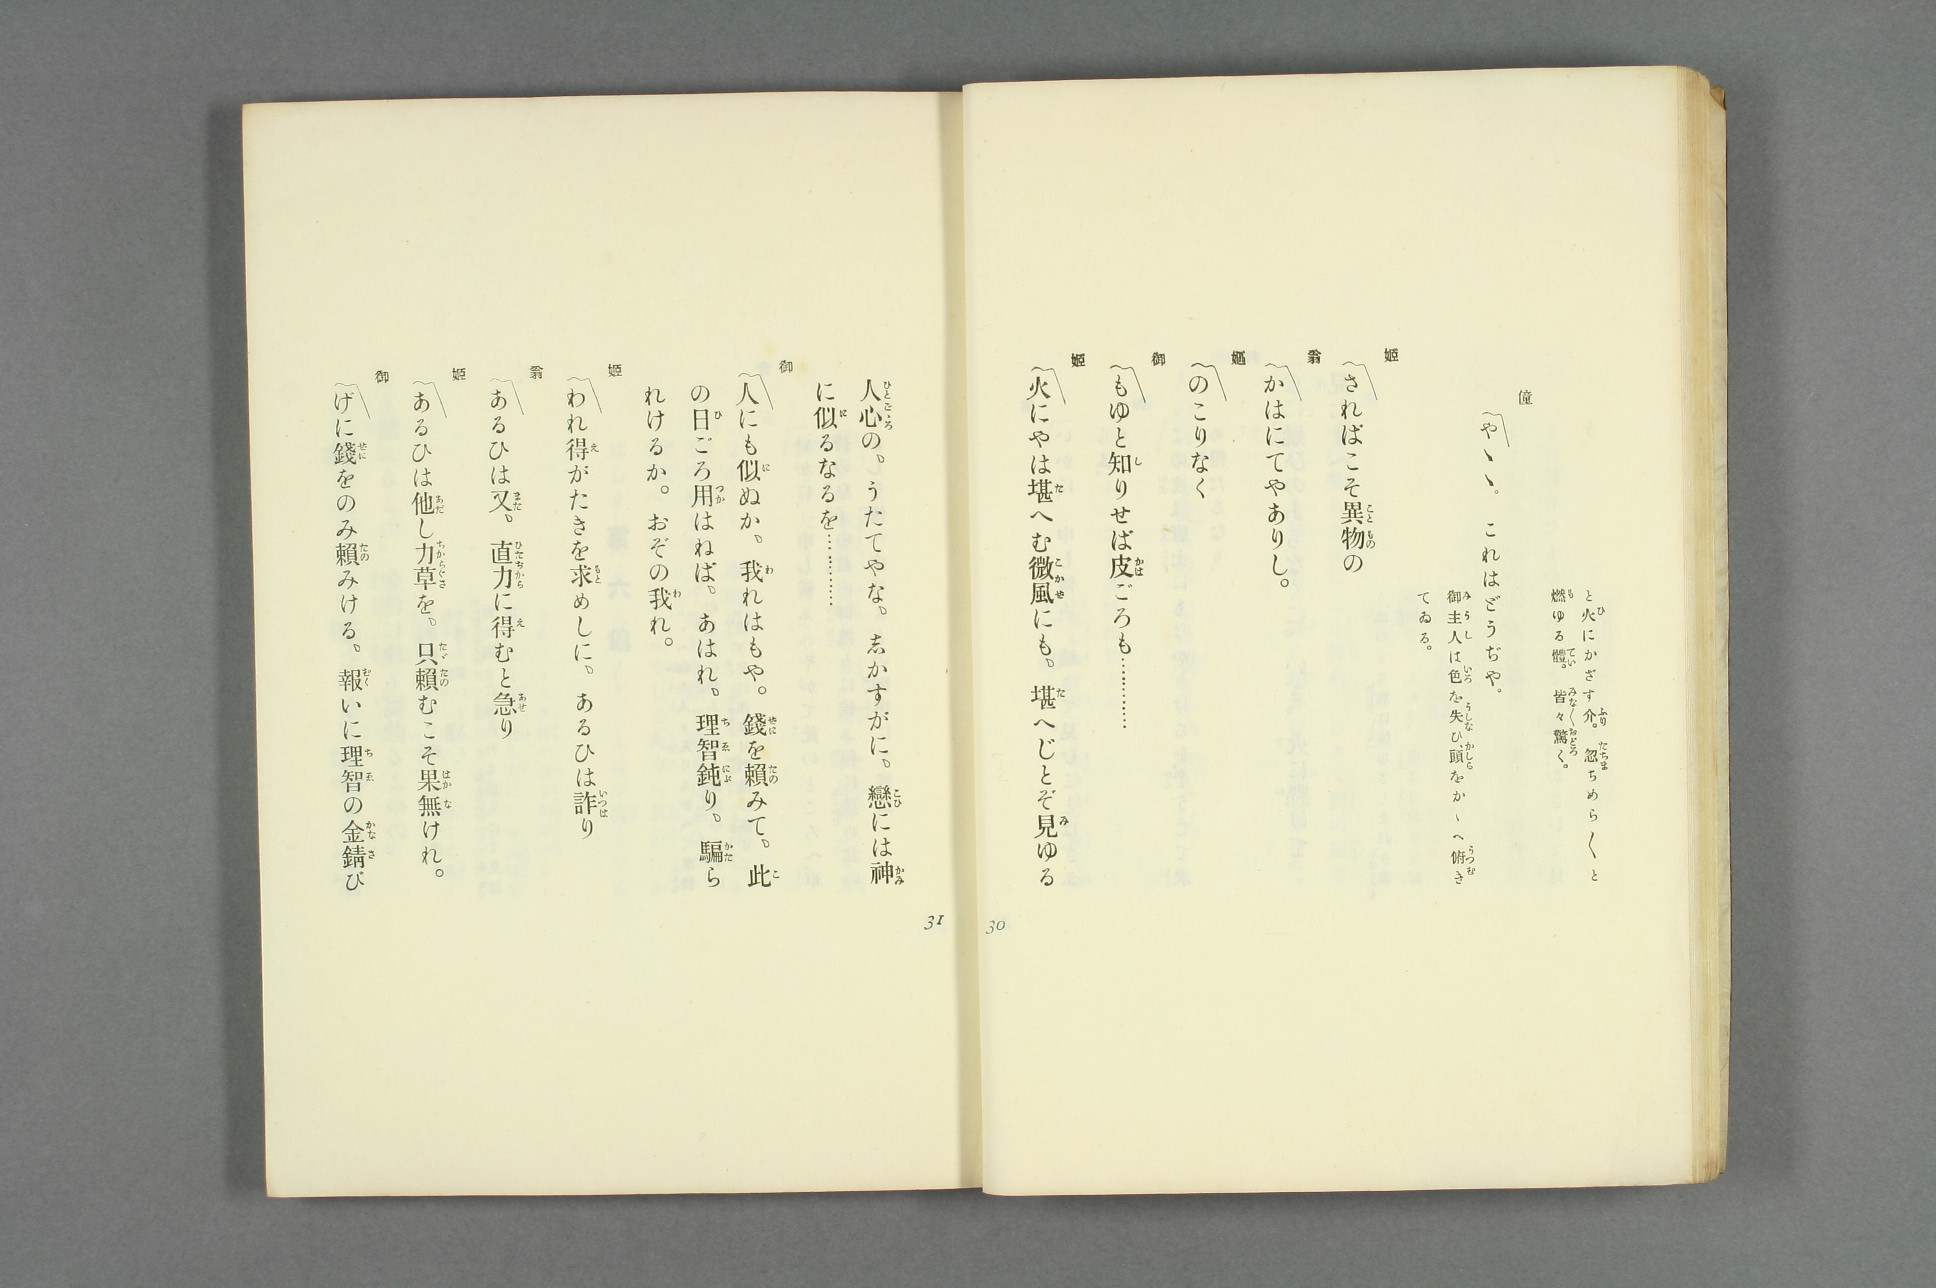 と火にかざす介。忽ちめら〱と
燃ゆる體。皆々驚く。
僮
〽やヽヽ。これはどうぢや。
御主人は色を失ひ、頭をかヽへ俯き
てゐる。
姫
〽さればこそ異物の
翁
〽かはにてやありし。
嫗
〽のこりなく
御
〽もゆと知りせば皮ごろも…………
姫
〽火にやは堪へむ微風にも、堪へじとぞ見ゆる
30
人心の、うたてやな、志かすがに、戀には神
に似るなるを…………
御
〽人にも似ぬか、我れはもや。錢を頼みて、此
の日ごろ用はねば、あはれ、理智鈍り、騙ら
れけるか。おぞの我れ。
姫
〽われ得がたきを求めしに、あるひは詐り
翁
〽あるひは又、直力に得むと急り
姫
〽あるひは他し力草を、只頼むこそ果無けれ。
御
〽げに錢をのみ頼みける、報いに理智の金錆び
31